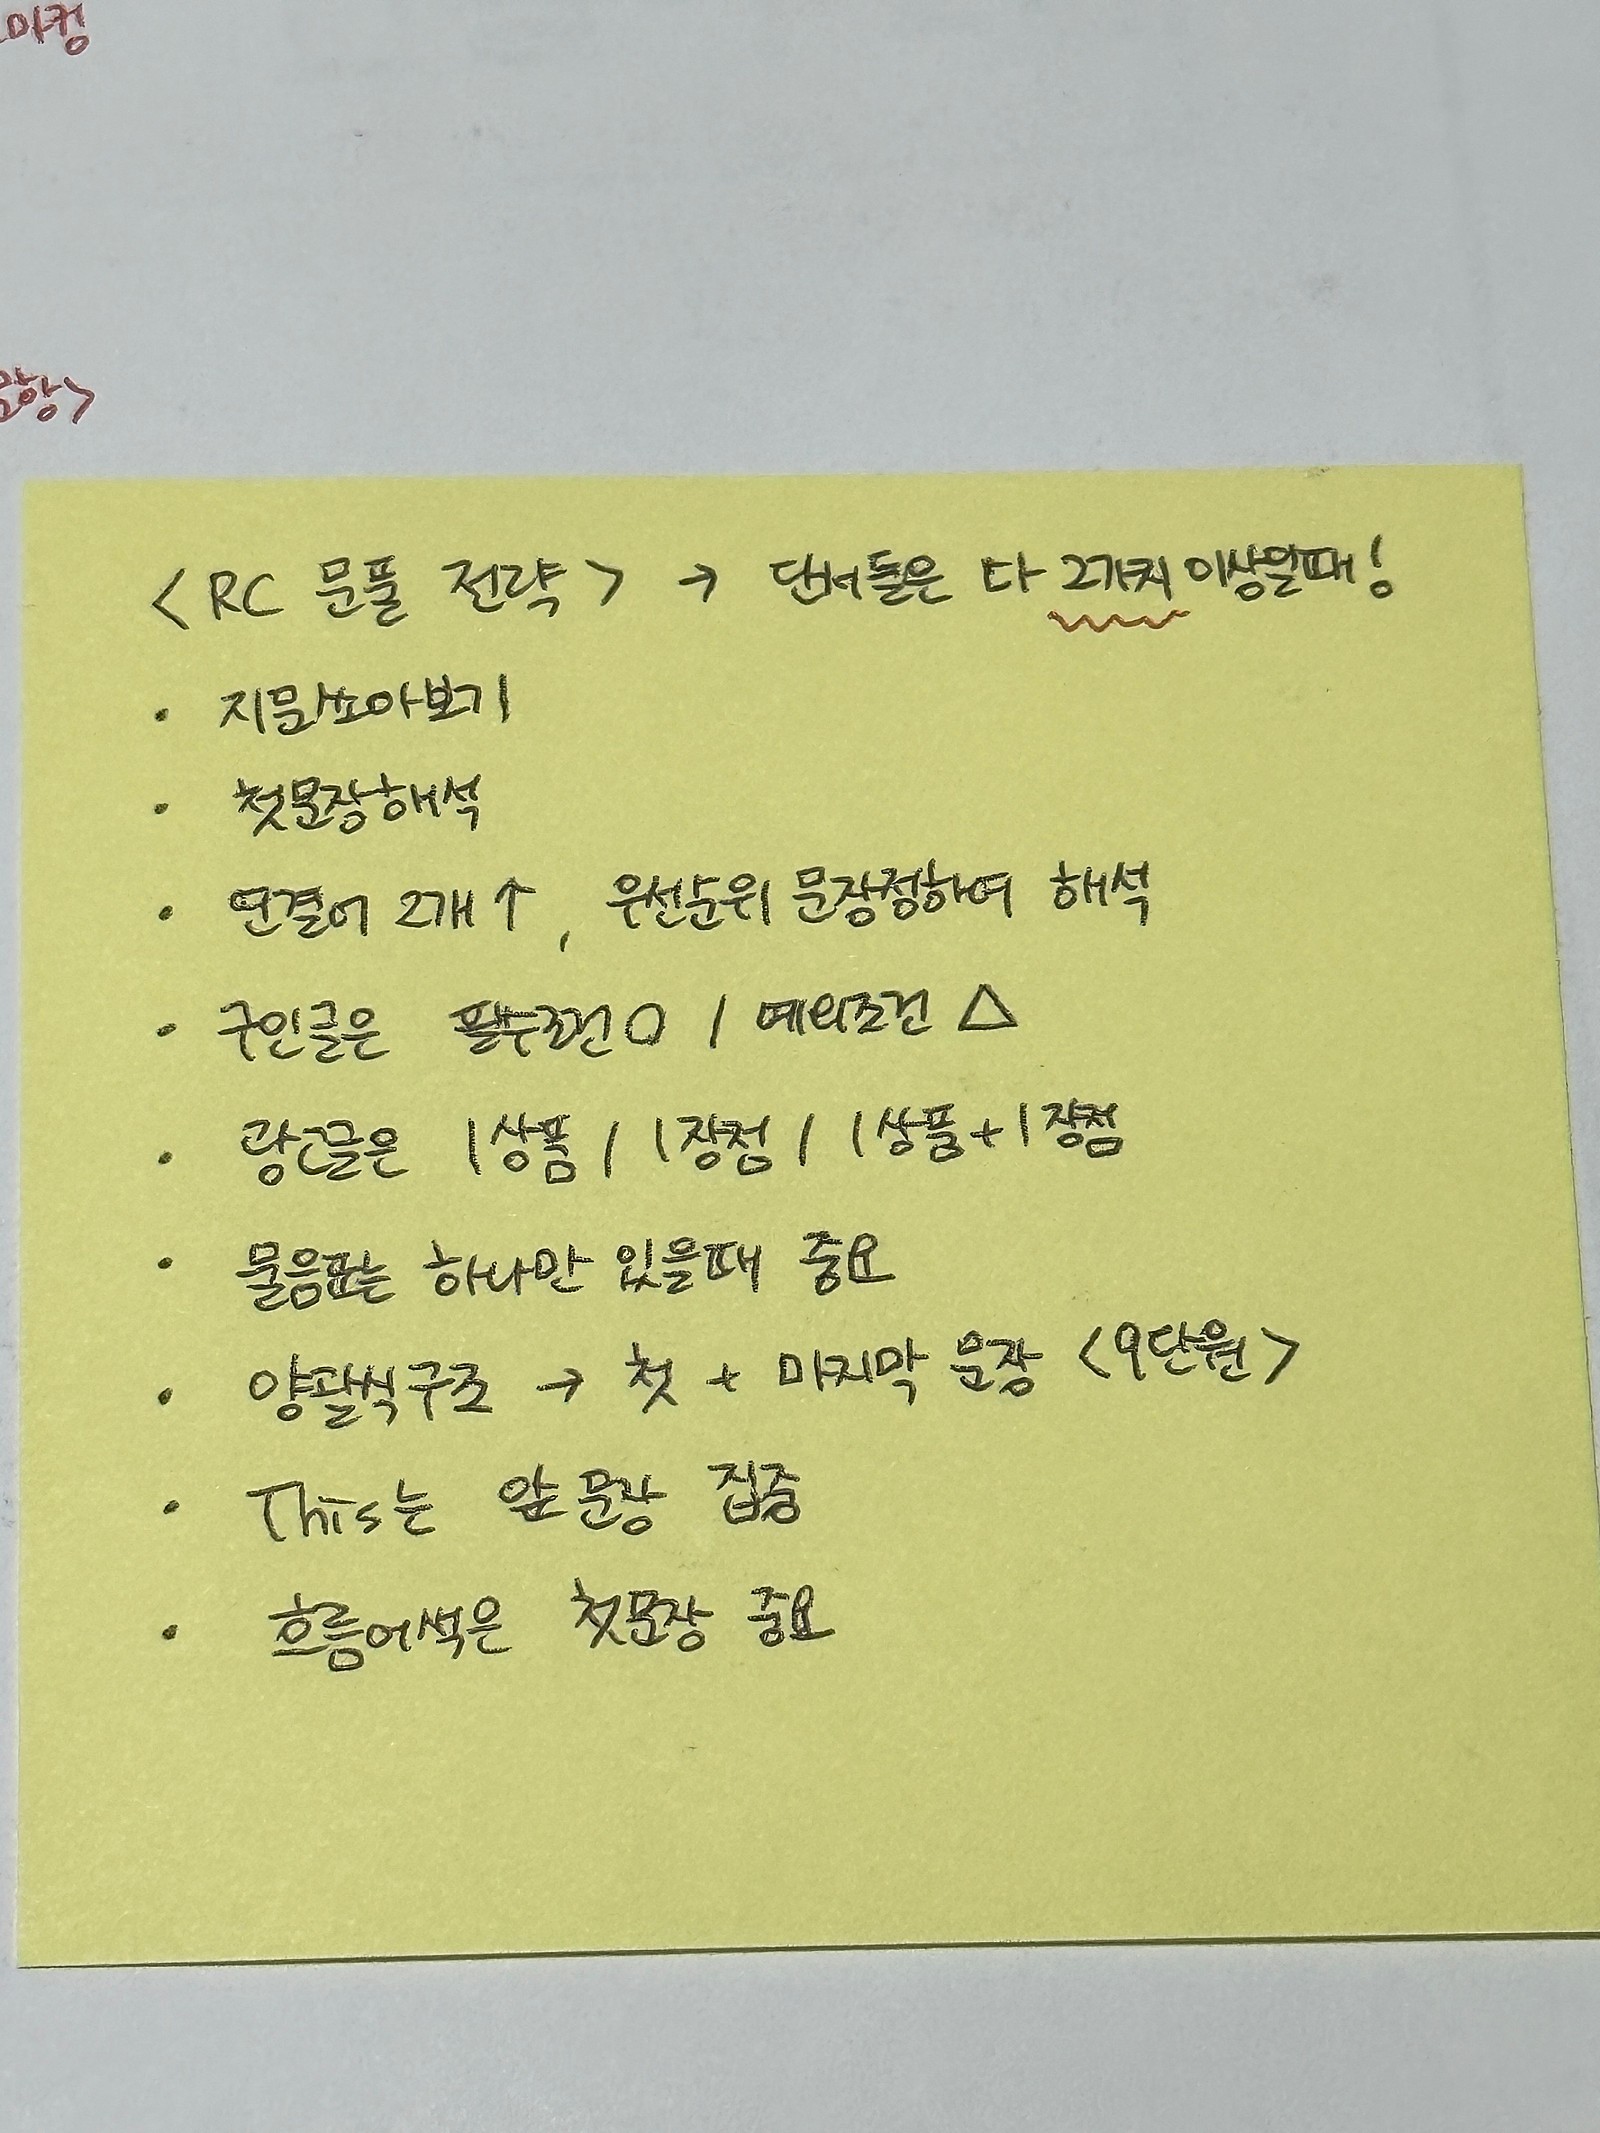 마킹
<RC 문풀 전략> → 단서들은 다 2가지 이상일때!
• 지문쏘아보기
• 첫문장해석
• 연결어 2개↑, 우선순위 문장정하여 해석
• 구인글은 필수조건○ / 예외조건 △
• 광고글은 1상품 / 1장점 / 1상품+1장점
• 물음표는 하나만 있을때 중요
• 양괄식구조 → 첫 + 마지막 문장 <9단원>
• This는 앞 문장 집중
• 흐름어색은 첫문장 중요